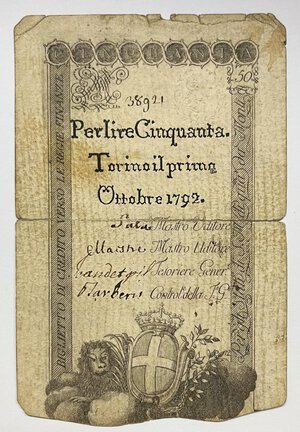 CINQUANTA
50
38921
Per lire Cinquanta.
Torino il primo
Ottobre 1792.
Mastro Uditore
Mastro Uditore
Tesoriere Gener.
Barberis Control. della T. G.
BIGLIETTO DI CREDITO VERSO LE REGIE FINANZE